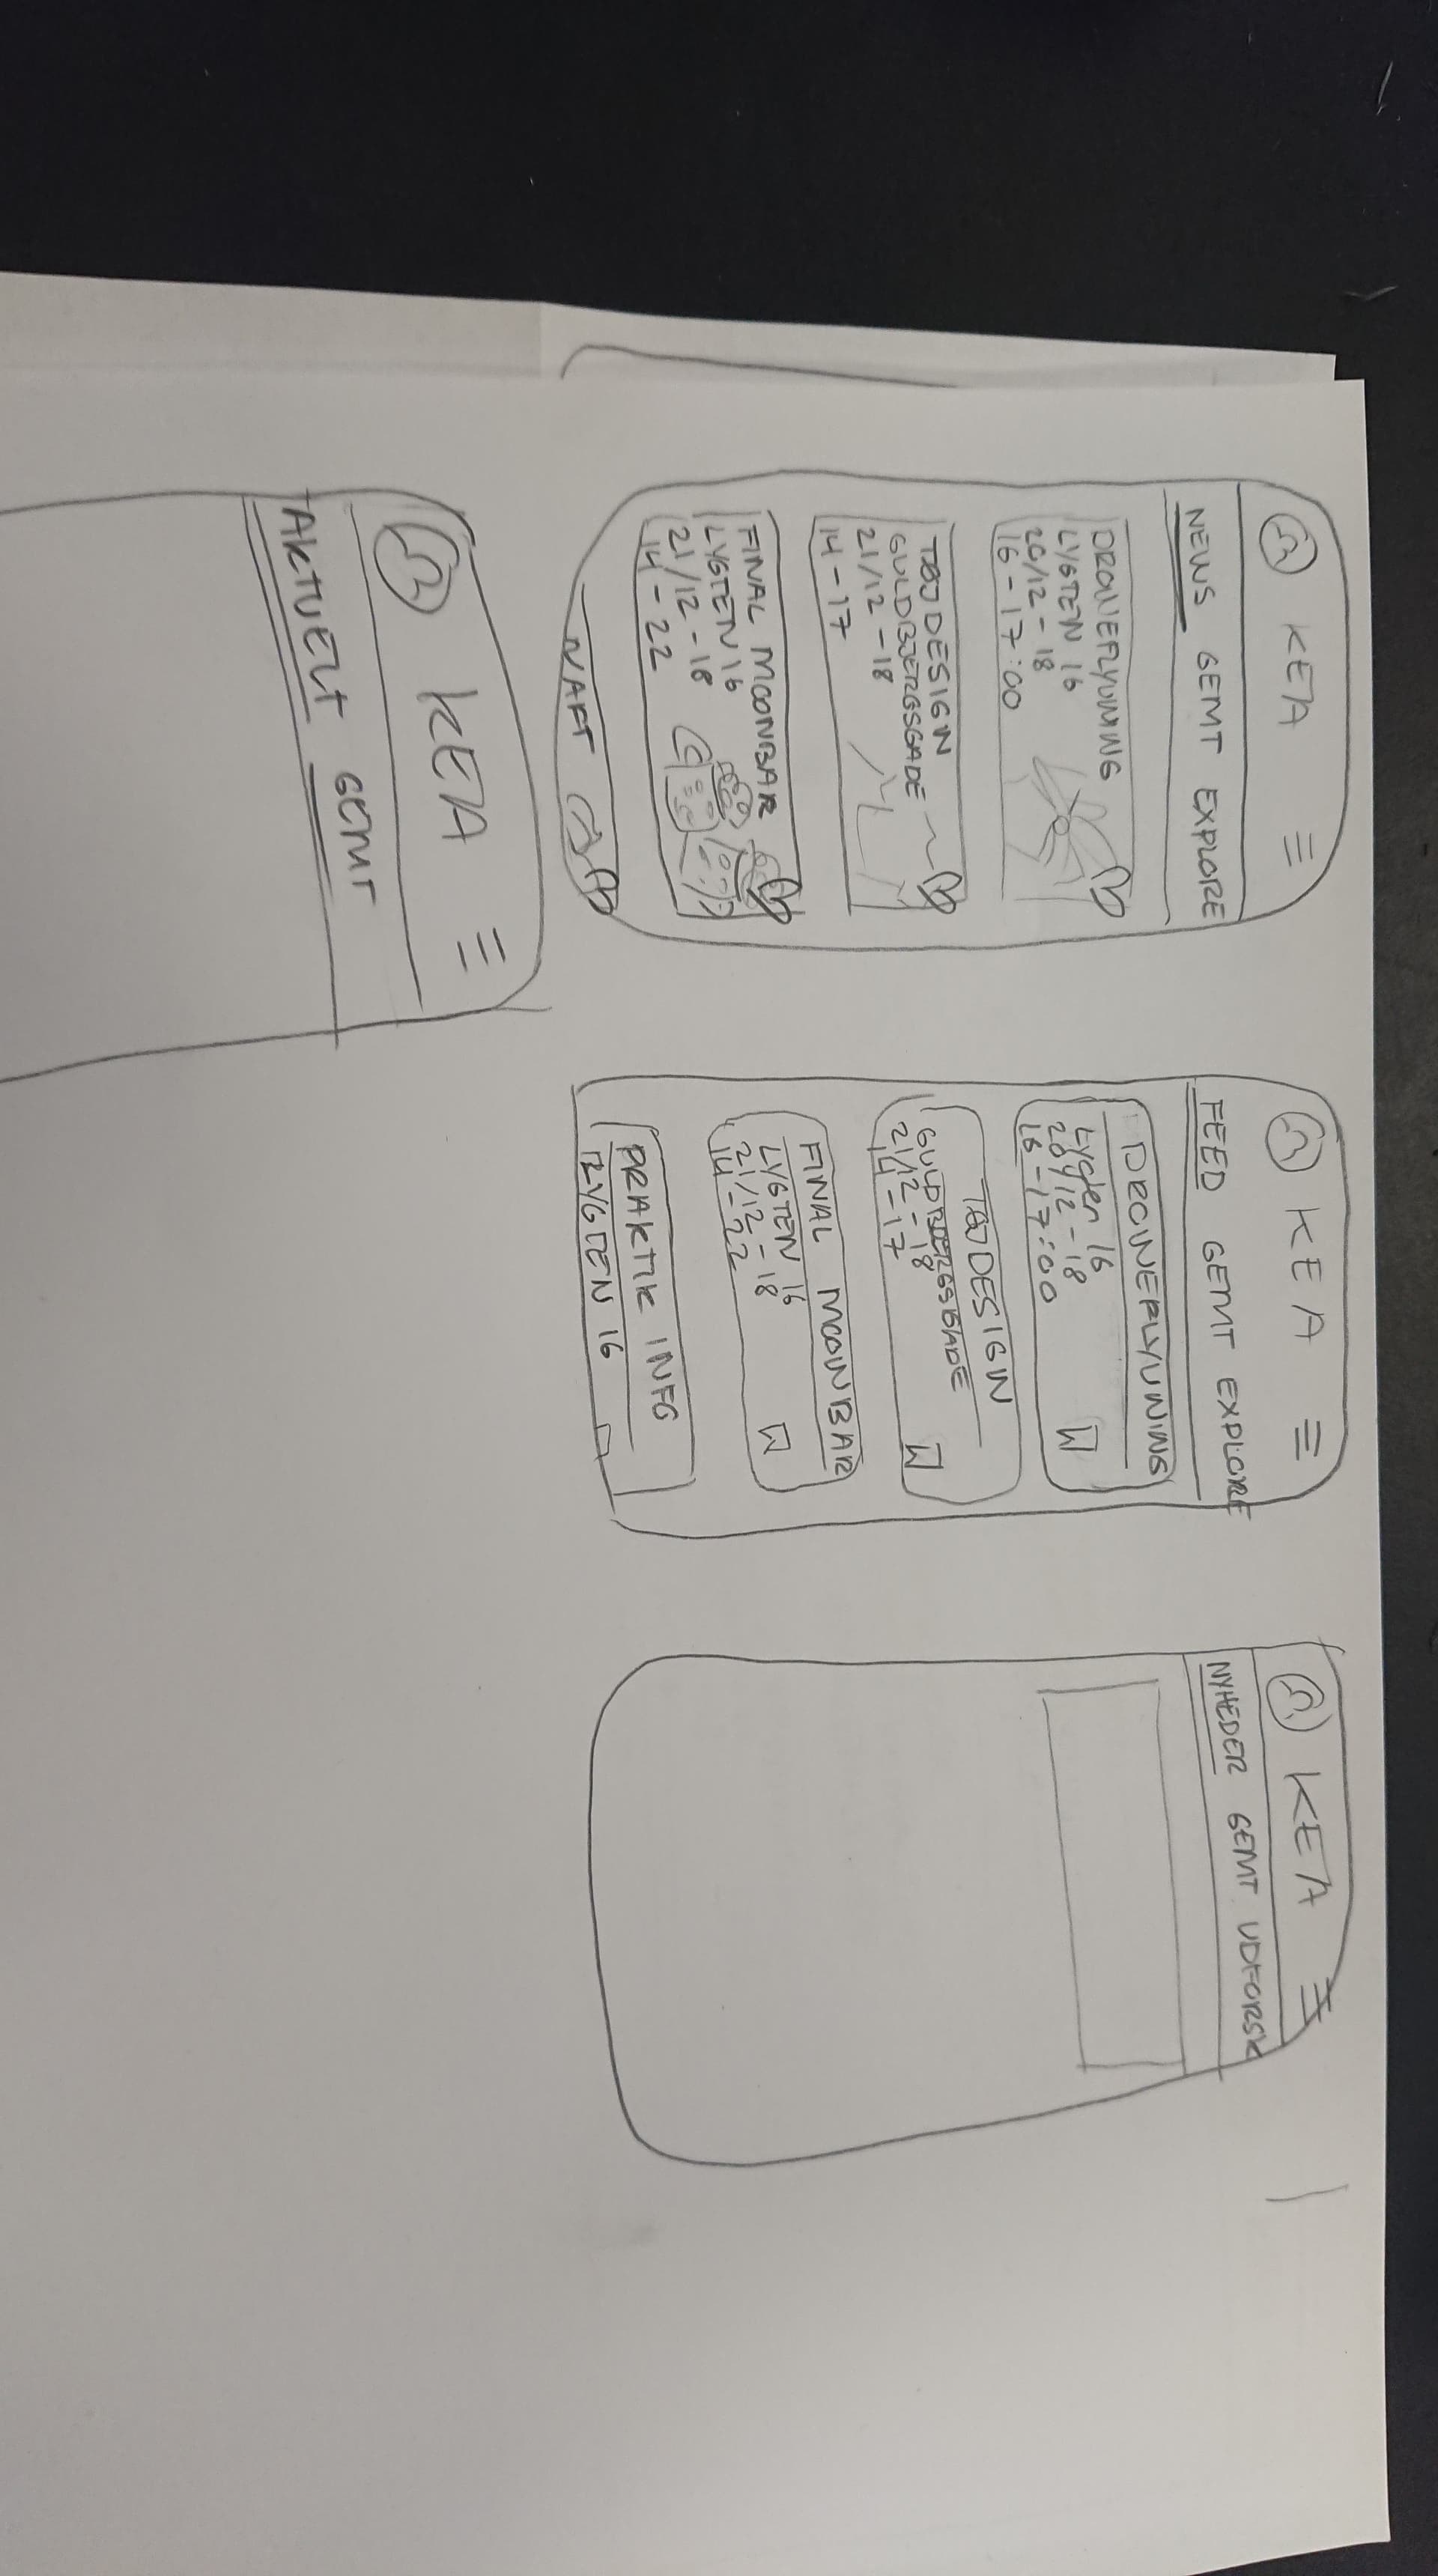 KEA
NEWS GEMT EXPLORE
DRONEFLYVNING
LYGTEN 16
20/12 - 18
16 - 17:00
TØJDESIGN
GULDBJERGSGADE
21/12 - 18
14 - 17
FINAL MOONBAR
LYGTEN 16
21/12 - 18
14 - 22
KEA
FEED GEMT EXPLORE
DRONEFLYVNING
Lygten 16
20/12 - 18
16 - 17:00
TØJDESIGN
GULDBJERGSGADE
21/12 - 18
14 - 17
FINAL MOONBAR
LYGTEN 16
21/12 - 18
14 - 22
PRAKTIK INFO
LYGTEN 16
KEA
NYHEDER GEMT UDFORSK
KEA
AKTUELT GEMT